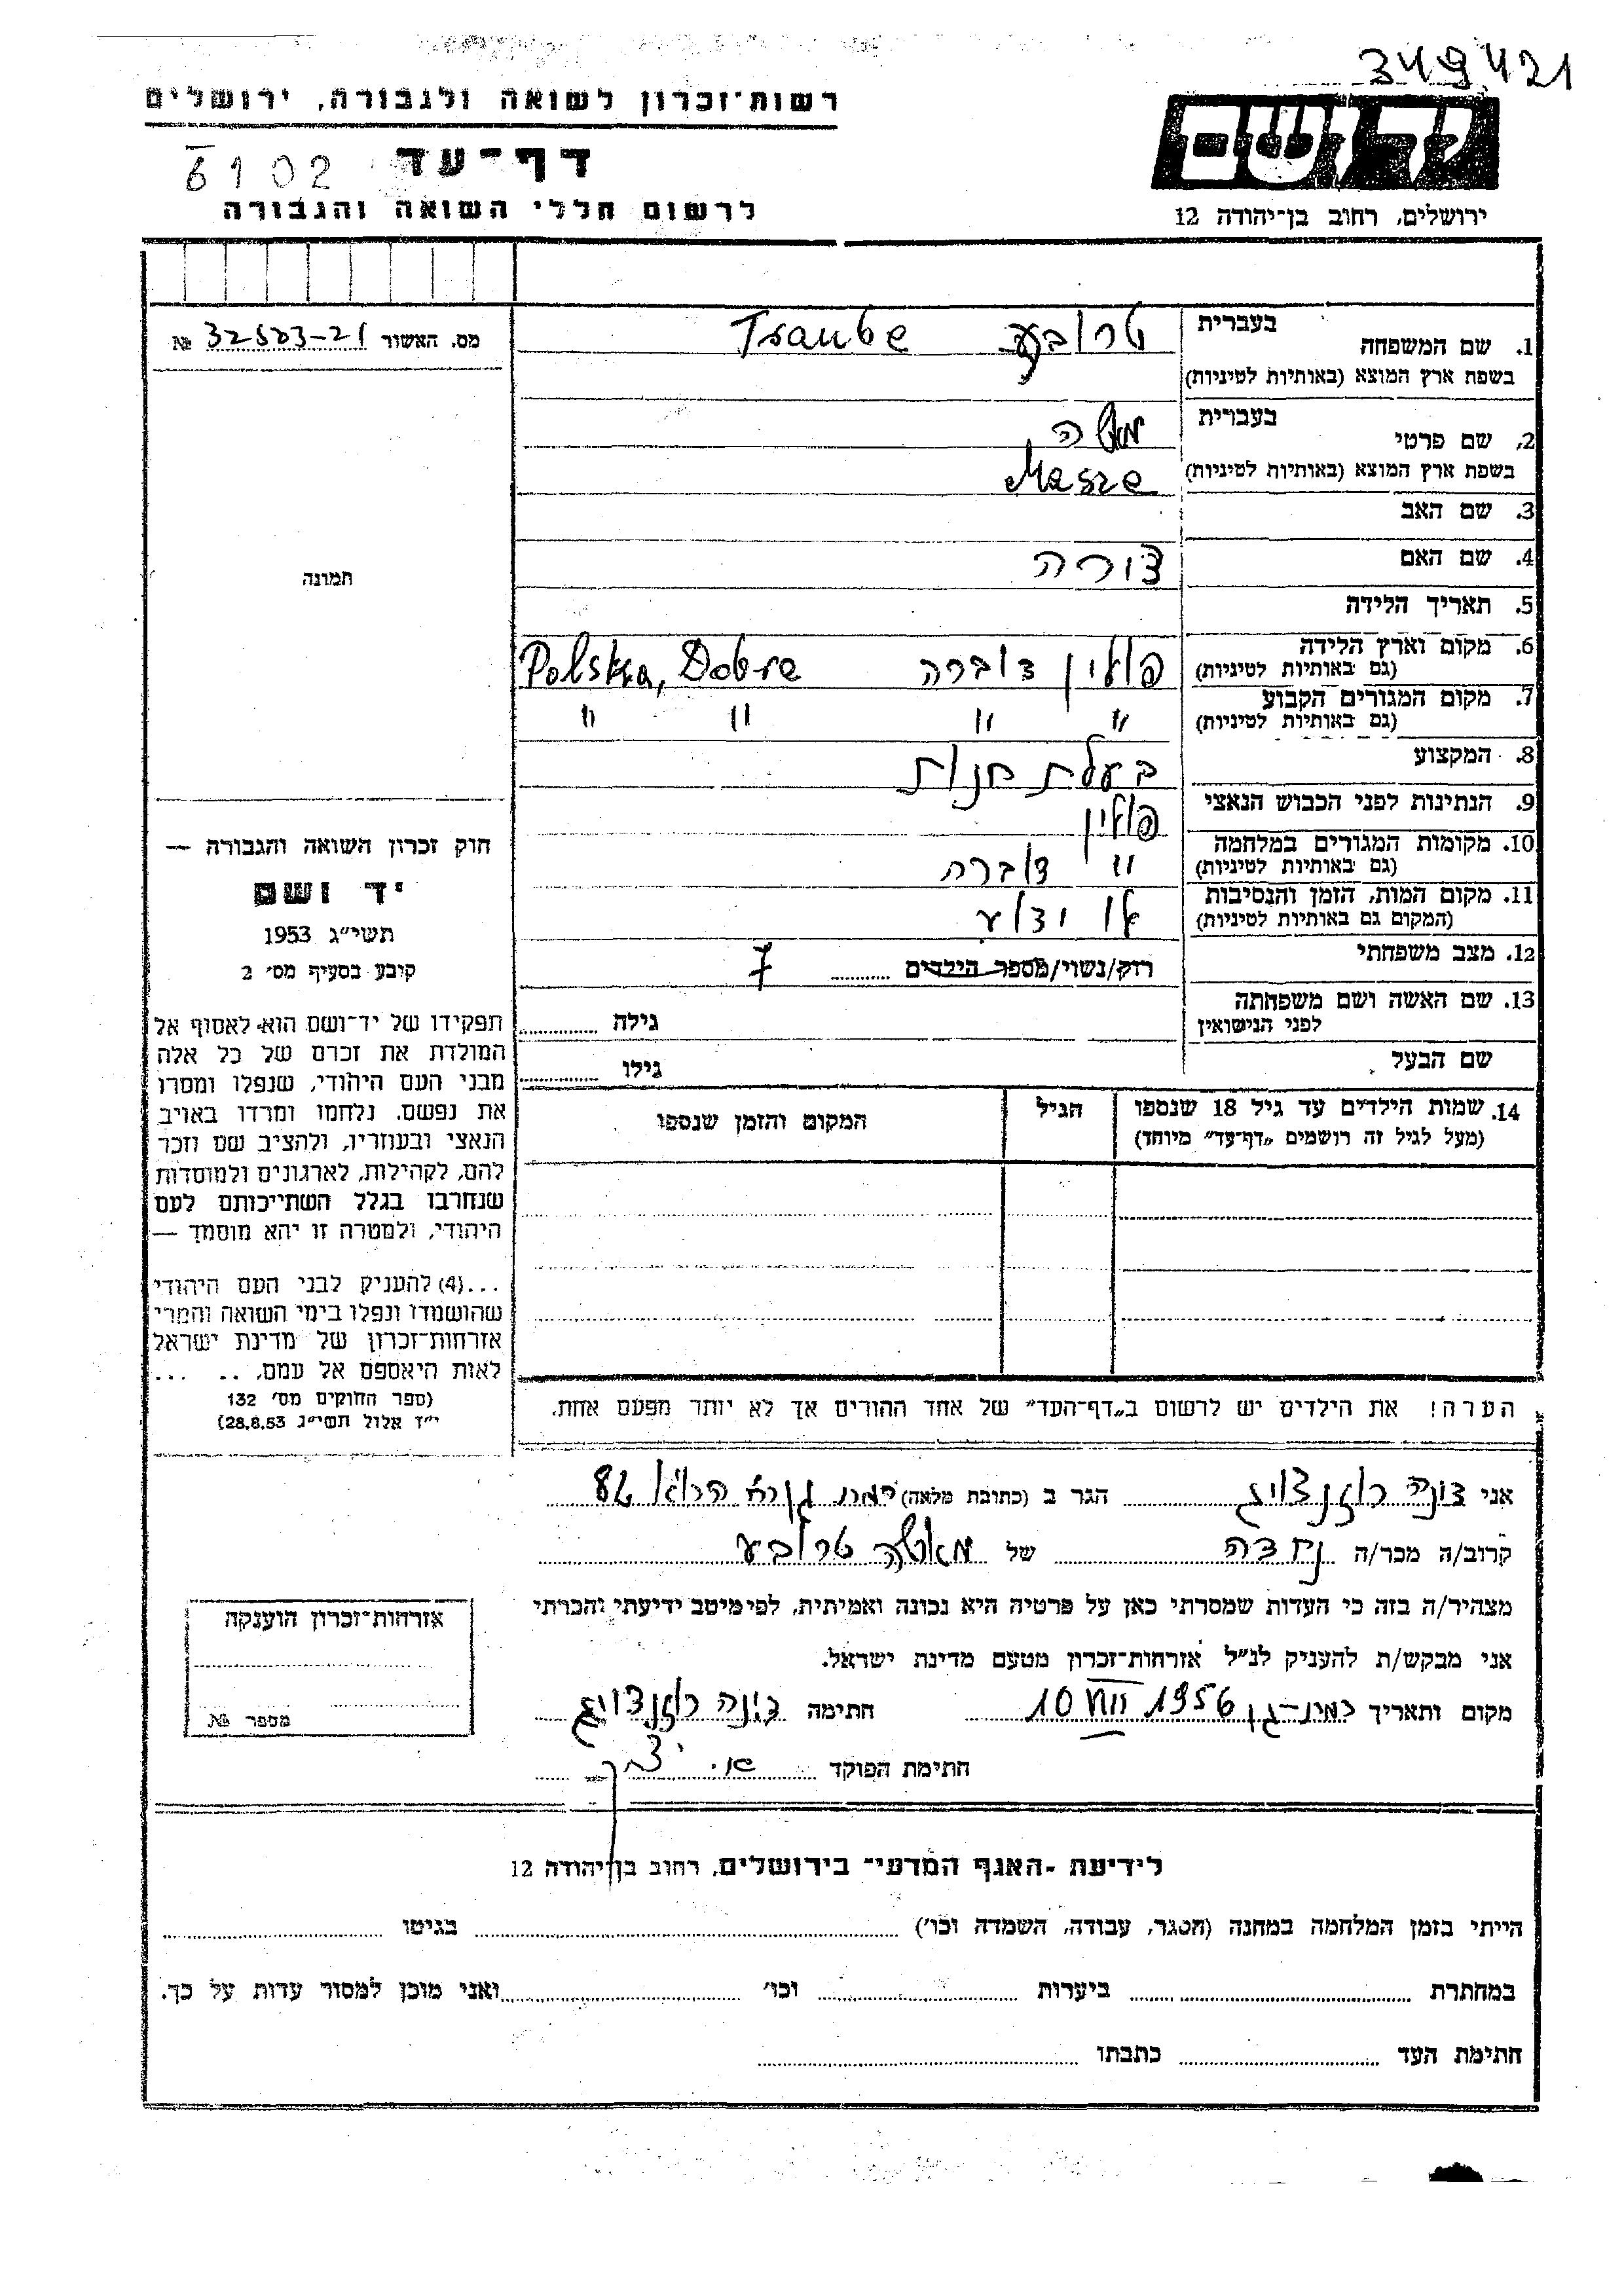 349421
רשות־זכרון לשואה ולגבורה, ירושלים
יד ושם
דף־עד
6102
לרשום חללי השואה והגבורה
ירושלים, רחוב בן־יהודה 12
מס. האשור 32523-21 №
1. שם המשפחה
בעברית
טרובע Traube
בשפת ארץ המוצא (באותיות לטיניות)
2. שם פרטי
בעברית
מאשה
בשפת ארץ המוצא (באותיות לטיניות)
Masze
3. שם האב
4. שם האם
דורה
5. תאריך הלידה
6. מקום וארץ הלידה
(גם באותיות לטיניות)
פולין דוברה Polska, Dobre
7. מקום המגורים הקבוע
(גם באותיות לטיניות)
" " " "
8. המקצוע
בעלת חנות
9. הנתינות לפני הכבוש הנאצי
פולין
10. מקומות המגורים במלחמה
(גם באותיות לטיניות)
" דוברה
11. מקום המות, הזמן והנסיבות
(המקום גם באותיות לטיניות)
לא ידוע
12. מצב משפחתי
רוק/נשוי/מספר הילדים 7
13. שם האשה ושם משפחתה
לפני הנישואין
גילה
שם הבעל
גילו
14. שמות הילדים עד גיל 18 שנספו
(מעל לגיל זה רושמים „דף־עד" מיוחד)
הגיל
המקום והזמן שנספו
תמונה
חוק זכרון השואה והגבורה —
יד ושם
תשי״ג 1953
קובע בסעיף מס׳ 2
תפקידו של יד־ושם הוא לאסוף אל
המולדת את זכרם של כל אלה
מבני העם היהודי, שנפלו ומסרו
את נפשם, נלחמו ומרדו באויב
הנאצי ובעוזריו, ולהציב שם וזכר
להם, לקהילות, לארגונים ולמוסדות
שנחרבו בגלל השתייכותם לעם
היהודי, ולמטרה זו יהא מוסמך —
...(4) להעניק לבני העם היהודי
שהושמדו ונפלו בימי השואה והמרי
אזרחות־זכרון של מדינת ישראל
לאות היאספם אל עמם. .. ...
(ספר החוקים מס׳ 132
י״ז אלול תשי״ג 28.8.53)
הערה! את הילדים יש לרשום ב„דף־העד" של אחד ההורים אך לא יותר מפעם אחת.
אני הגר ב (כתובת מלאה) רמת גן 86
קרוב/ה מכר/ה נכדה של מאשה טרובע
מצהיר/ה בזה כי העדות שמסרתי כאן על פרטיה היא נכונה ואמיתית, לפי מיטב ידיעתי והכרתי
אני מבקש/ת להעניק לנ״ל אזרחות־זכרון מטעם מדינת ישראל.
מקום ותאריך רמת-גן 10 VIII 1956 חתימה
חתימת הפוקד
אזרחות־זכרון הוענקה
מספר №
לידיעת -האגף המדעי־ בירושלים, רחוב בן יהודה 12
הייתי בזמן המלחמה במחנה (הסגר, עבודה, השמדה וכו׳) בגיטו
במחתרת ביערות וכו׳ ואני מוכן למסור עדות על כך.
חתימת העד כתבתו